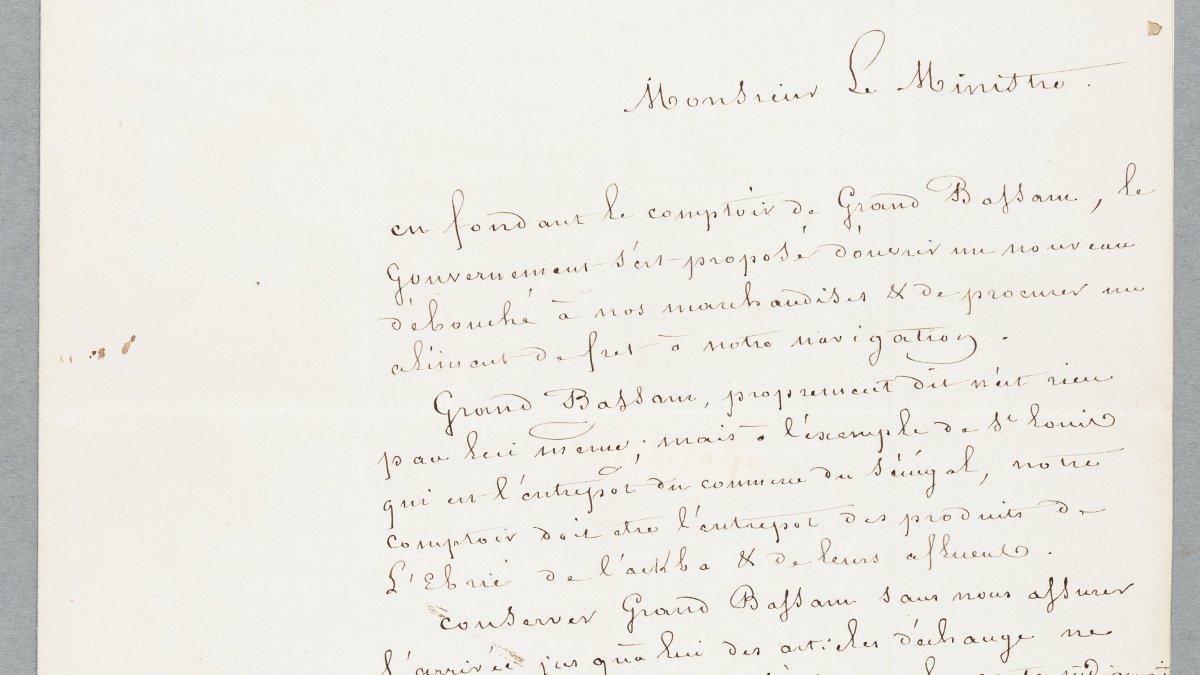 Monsieur Le Ministre.
en fondant le comptoir de Grand Bassam, le
Gouvernement s'est proposé d'ouvrir un nouveau
débouché à nos marchandises & de procurer un
aliment de fret à notre navigation.
Grand Bassam, proprement dit n'est rien
par lui meme; mais à l'exemple de St Louis
qui est l'entrepot du commerce du Sénégal, notre
comptoir doit etre l'entrepot des produits de
L'Ebrié de l'ackba & de leurs afluents.
conserver Grand Bassam sans nous assurer
l'arrivée jusqu'à lui des articles d'échange ne